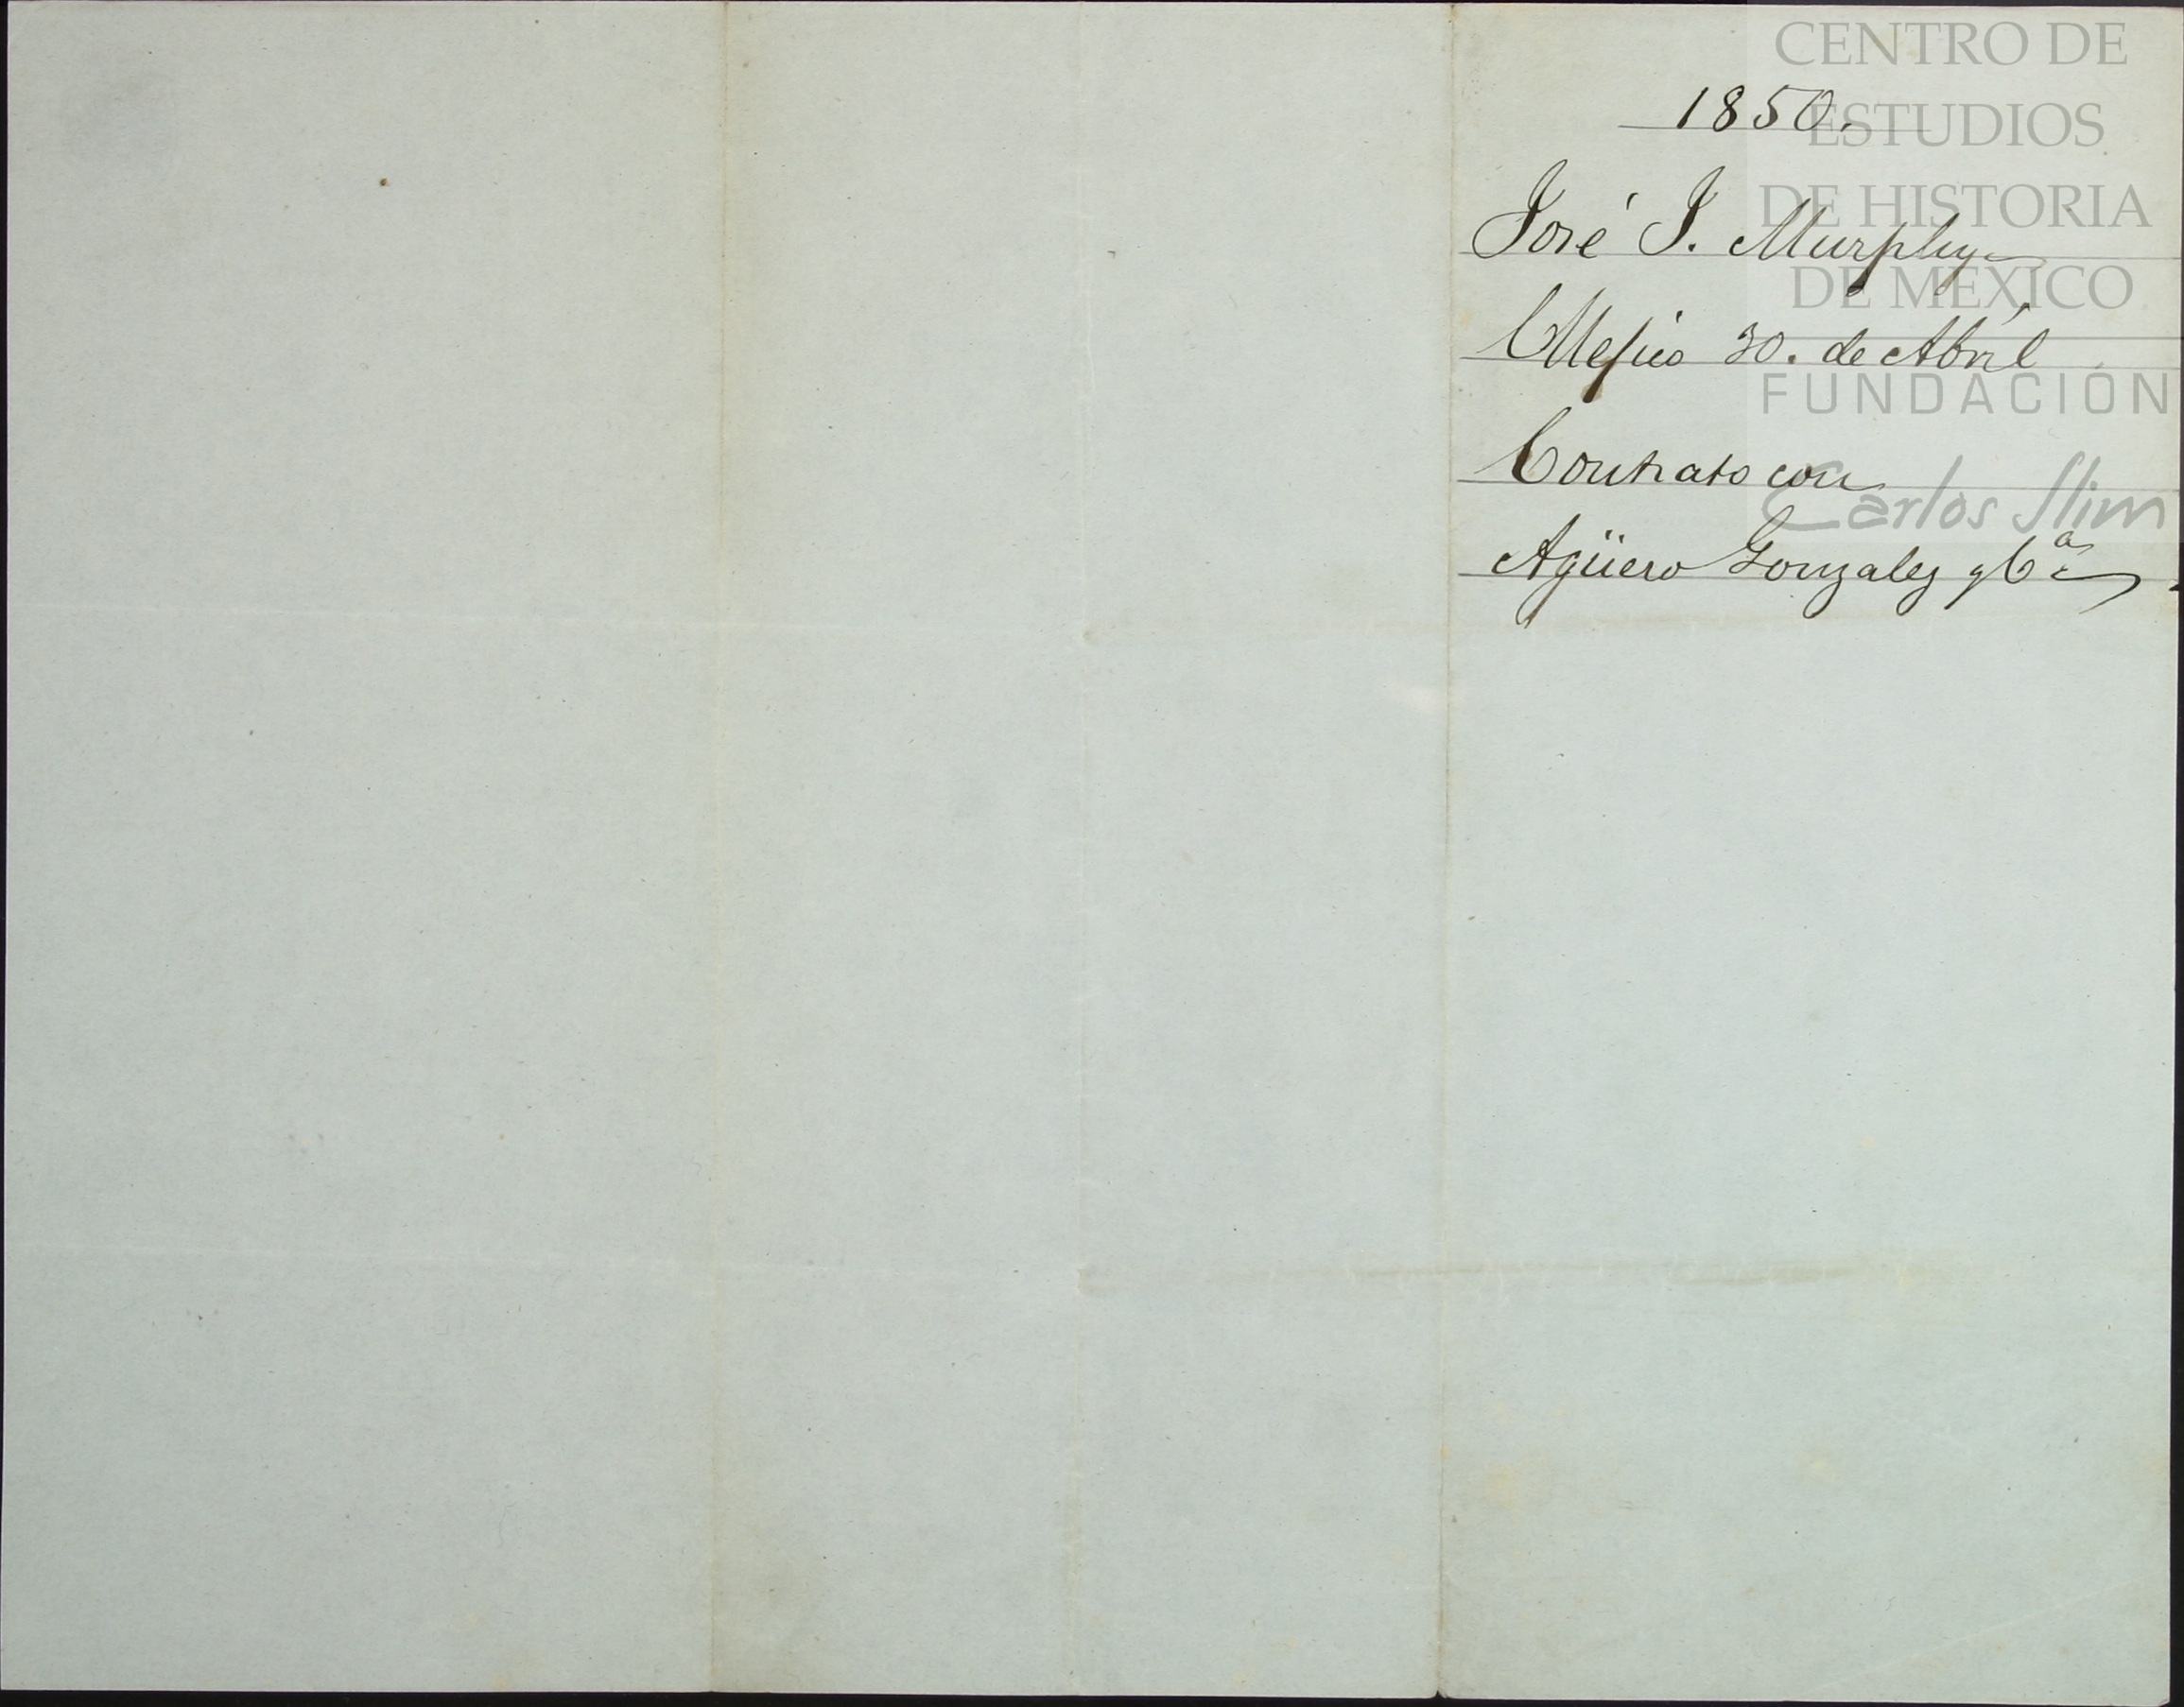 1850.
José J. Murphy
Mejico 30. de Abril
Contrato con
Agüero Gonzalez y Cª
CENTRO DE
ESTUDIOS
DE HISTORIA
DE MÉXICO
FUNDACIÓN
Carlos Slim